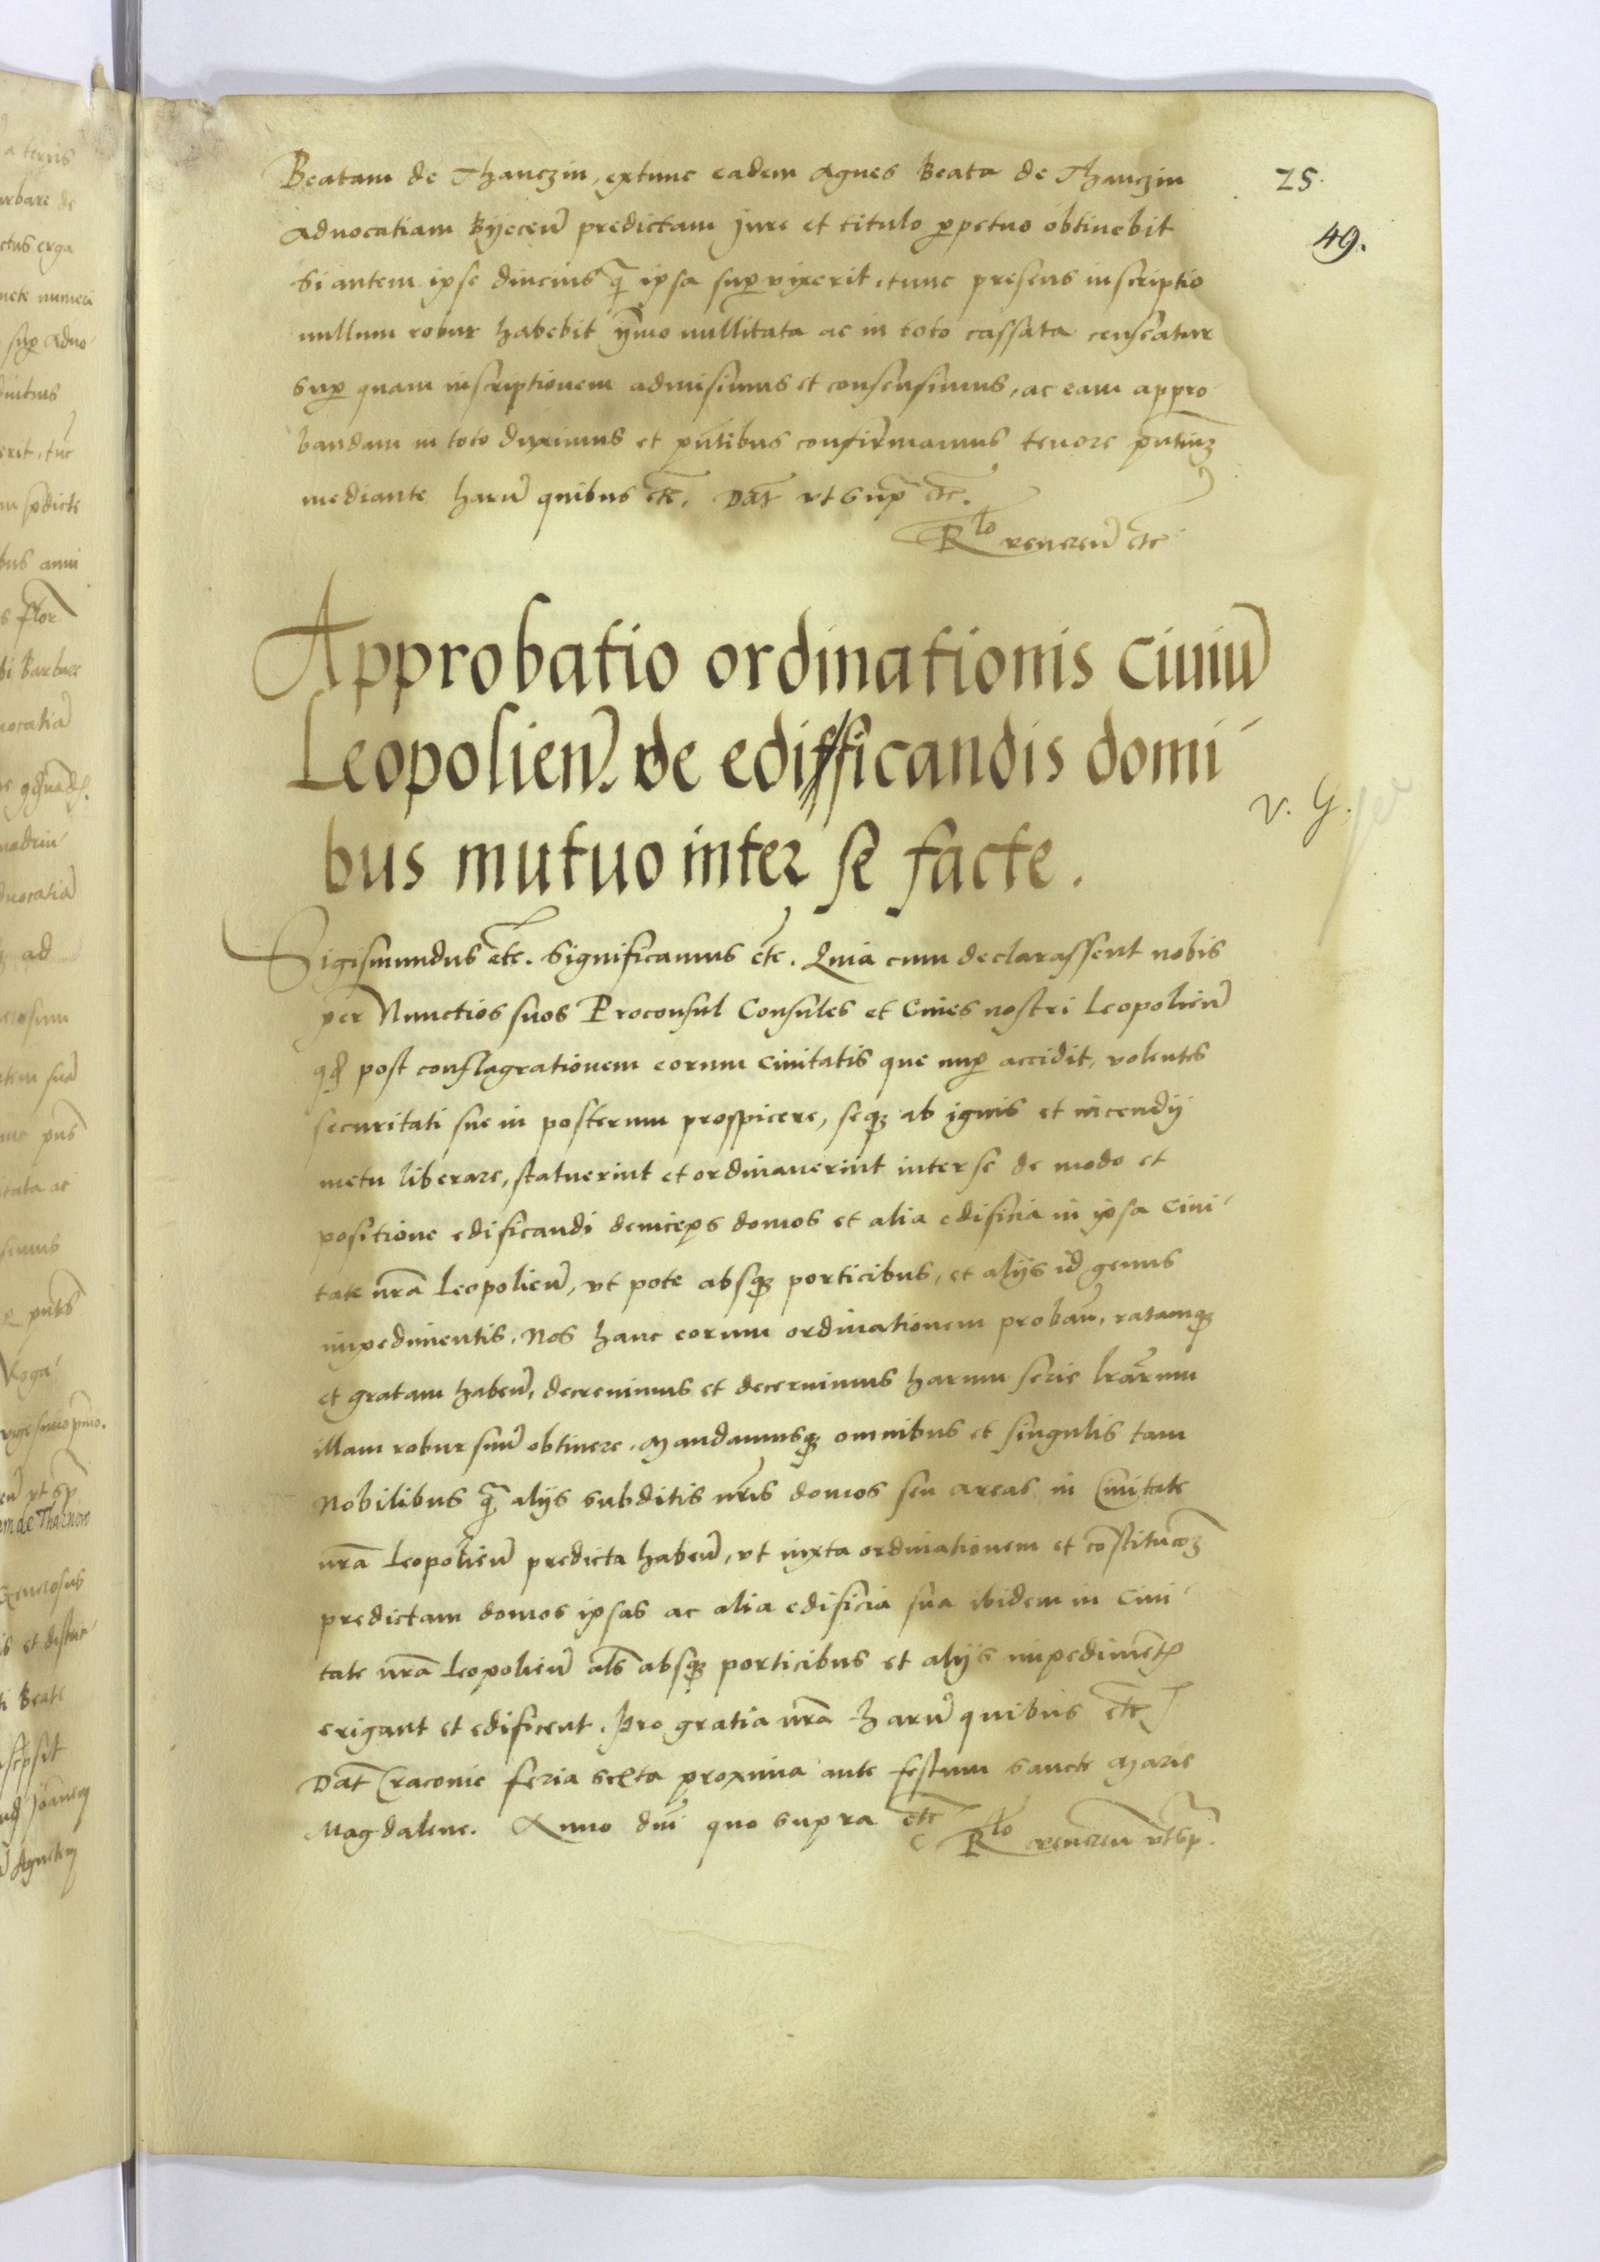 25.
49.
Beatam de Thanczin, extunc eadem Agnes Beata de Thanczin
Aduocatiam Byecen̄ predictam Jure et titulo ꝑpetuo obtinebit
Si autem ipse diucius q̄ ipsa suꝑvixerit, tunc presens inscriptio
nullum robur habebit ȳmo nullitata ac in toto cassata censeatur
Suꝑ quam inscriptionem admisimus et consensimus, ac eam appro
bandam in toto duximus et pn̄tibus confirmamus tenore pn̄tiuꝫ
mediante harū quibus etc̄. Dat̄ vt sup̄ etc̄.
R̄lo venereñ etc̄
Approbatio ordinationis Ciuiū
Leopolien̄. de edifficandis domi
bus mutuo inter se facte.
V. G.
Sigismundus etc̄. Significamus etc̄. Quia cum declarassent nobis
per Nunctios suos Proconsul Consules et Ciues nostri Leopolien̄
qd̄ post conflagrationem eorum Ciuitatis que nuꝑ accidit, volentes
securitati sue in posterum prospicere, seqꝫ ab ignis et incendij
metu liberare, statuerint et ordinauerint inter se de modo et
positione edificandi deinceps domos et alia edificia in ipsa Ciui
tate nr̄a Leopolien̄, vt pote absqꝫ porticibus, et alijs id genus
impedimentis. Nos hanc eorum ordinationem proban̄, ratamqꝫ
et gratam haben̄, decreuimus et decernimus harum serie lr̄arum
illam robur suū obtinere. Mandamusqꝫ omnibus et singulis tam
Nobilibus q̄ alijs subditis nr̄is domos seu areas in Ciuitate
nr̄a Leopolien̄ predicta haben̄, vt iuxta ordinationem et cōstitucōꝫ
predictam domos ipsas ac alia edificia sua ibidem in Ciui
tate nr̄a Leopolien̄ als̄ absqꝫ porticibus et alijs impedimēt
erigant et edificent. Pro gratia nr̄a Harū quibus etc̄
Dat̄ Cracouie feria sexta proxima ante festum Sancte Marie
Magdalene. Anno dn̄i quo supra etc̄ R̄lo venereñ vt sp̄.